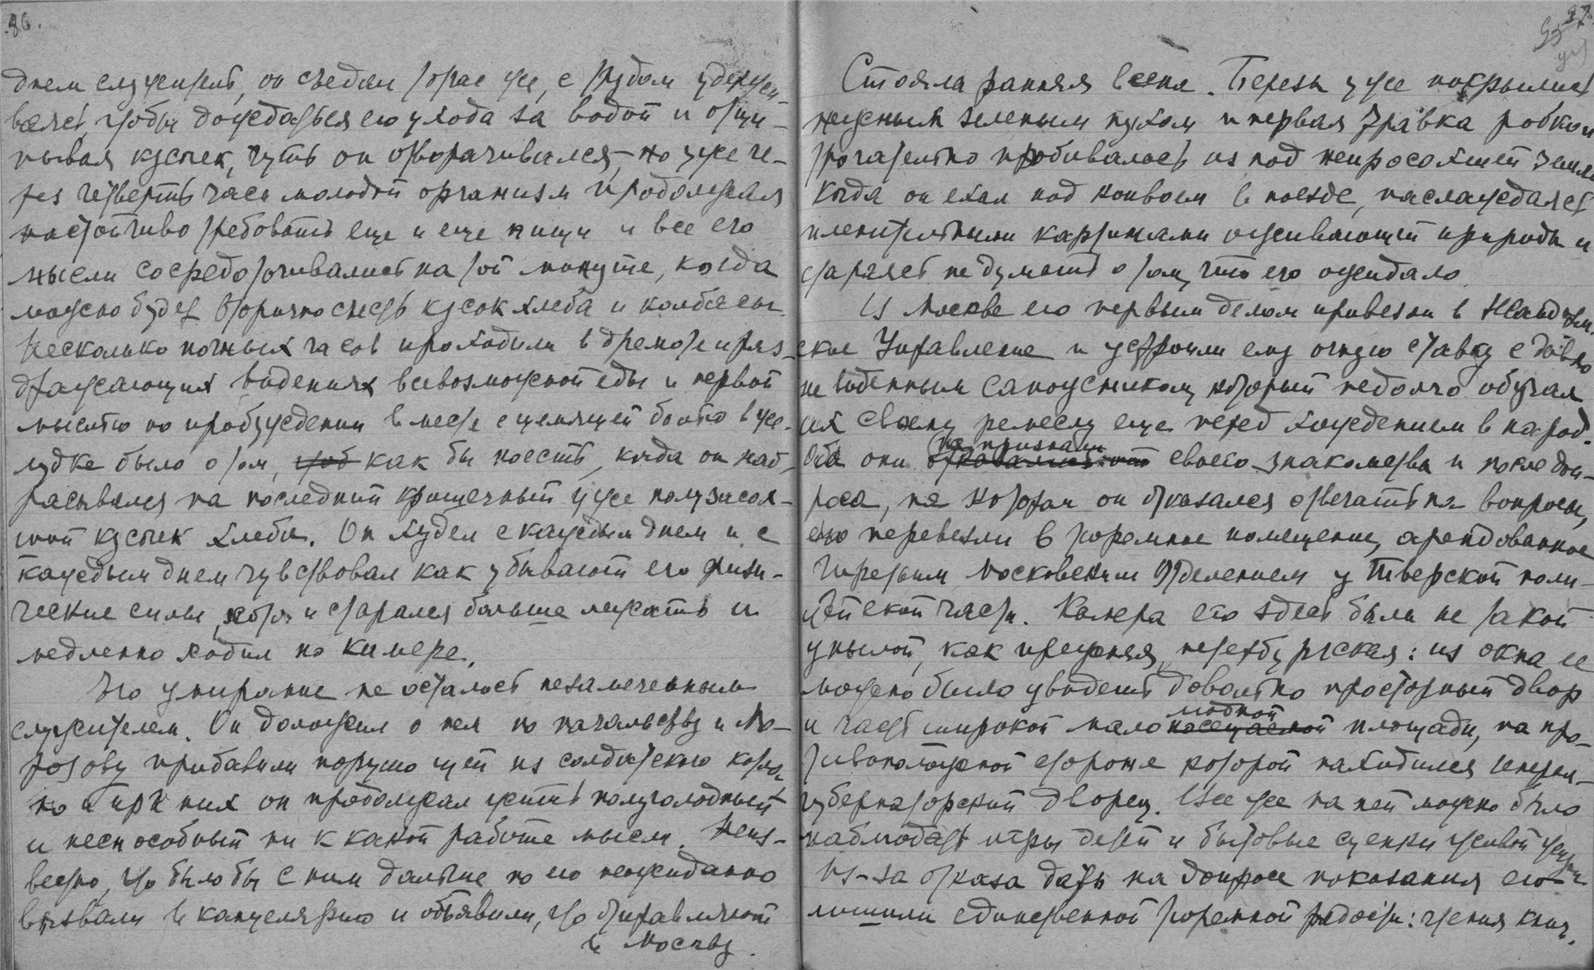 36.
днем служитель, он съедал тотчас же, с трудом удержи-
ваясь, чтобы дождаться его ухода за водой и ощи-
пывая кусочек, чуть он отворачивался, но уже че-
рез четверть часа молодой организм продолжал
настойчиво требовать еще и еще пищи и все его
мысли сосредоточивались на той минуте, когда
можно будет вторично съесть кусок хлеба и колбасы.
Несколько ночных часов проходили в дремоте и раз-
дражающих видениях всевозможной еды и первой
мыслью по пробуждении вместе с щемящей болью в же-
лудке было о том, чтоб как бы поесть, когда он наб-
расывался на последний крошечный уже полузасох-
ший кусочек хлеба. Он худел с каждым днем и с
каждым днем чувствовал как убывают его физи-
ческие силы, и старался больше лежать и
медленно ходил по камере.
Его умирание не осталось незамеченным
служителем. Он доложил о нем по начальству и Мо-
розову прибавили порцию щей из солдатского котла
но и при них он продолжал жить полуголодный
и неспособный ни к какой работе мысли. Неиз-
вестно, что было бы с ним дальше но его неожиданно
вызвали в канцелярию и объявили, что отправляют
в Москву.
37
Стояла ранняя весна. Березы уже покрылись
нежным зеленым пухом и первая травка робко и
трогательно пробивалась из под непросохшей земли
когда он ехал под конвоем в поезде, наслаждаясь
пленительными картинами оживающей природы и
стараясь не думать о том, что его ожидало.
В Москве его первым делом привезли в Жандарм-
ское Управление и устроили ему очную ставку с давно
не виденным сапожником, который недолго обучал
их своему ремеслу еще перед хождением в народ.
не признали
Оба они отказались от своего знакомства и после доп-
роса, на котором он отказался отвечать на вопросы,
его перевезли в тюремное помещение, арендованное
Третьим Московским Отделением у Тверской поли-
цейской части. Камера его здесь была не такой
унылой, как прежняя, петербургская: из окна ее
можно было увидеть довольно просторный двор
людной
и часть широкой мало посещаемой площади, на про-
тивоположной стороне которой находился генерал-
губернаторский дворец. Все же на ней можно было
наблюдать игры детей и бытовые сценки живой жизни
Из-за отказа дать на допросе показания его
лишили единственной тюремной радости: чтения книг.